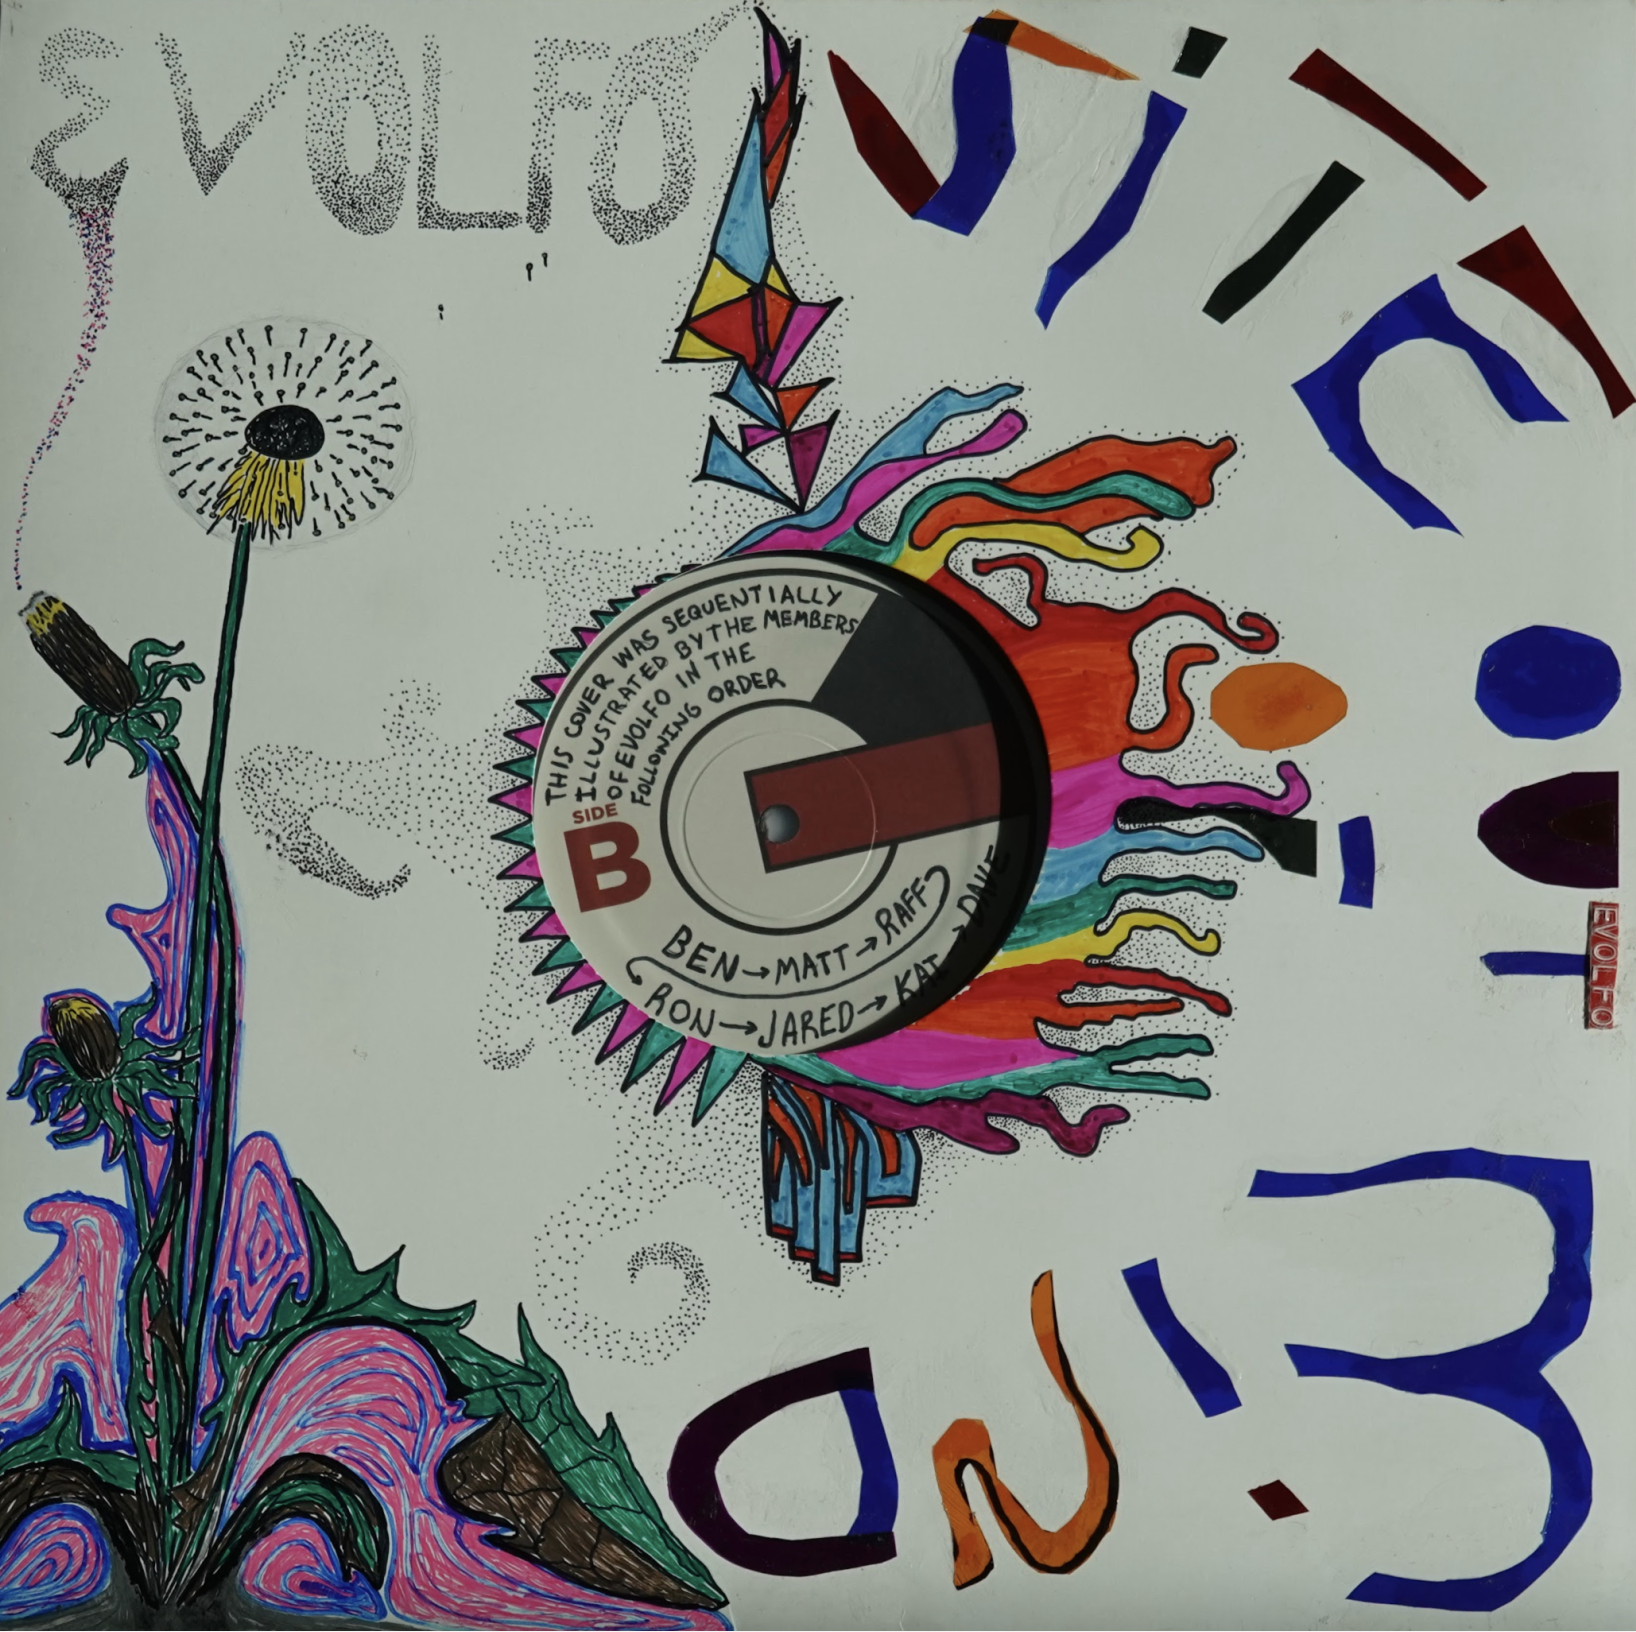 EVOLFO
SiTE
OUT
OF
MiND
THIS COVER WAS SEQUENTIALLY
ILLUSTRATED BY THE MEMBERS
OF EVOLFO IN THE
FOLLOWING ORDER
SIDE
B
BEN→MATT→RAFF
RON→JARED→KAI→DAVE
EVOLFO